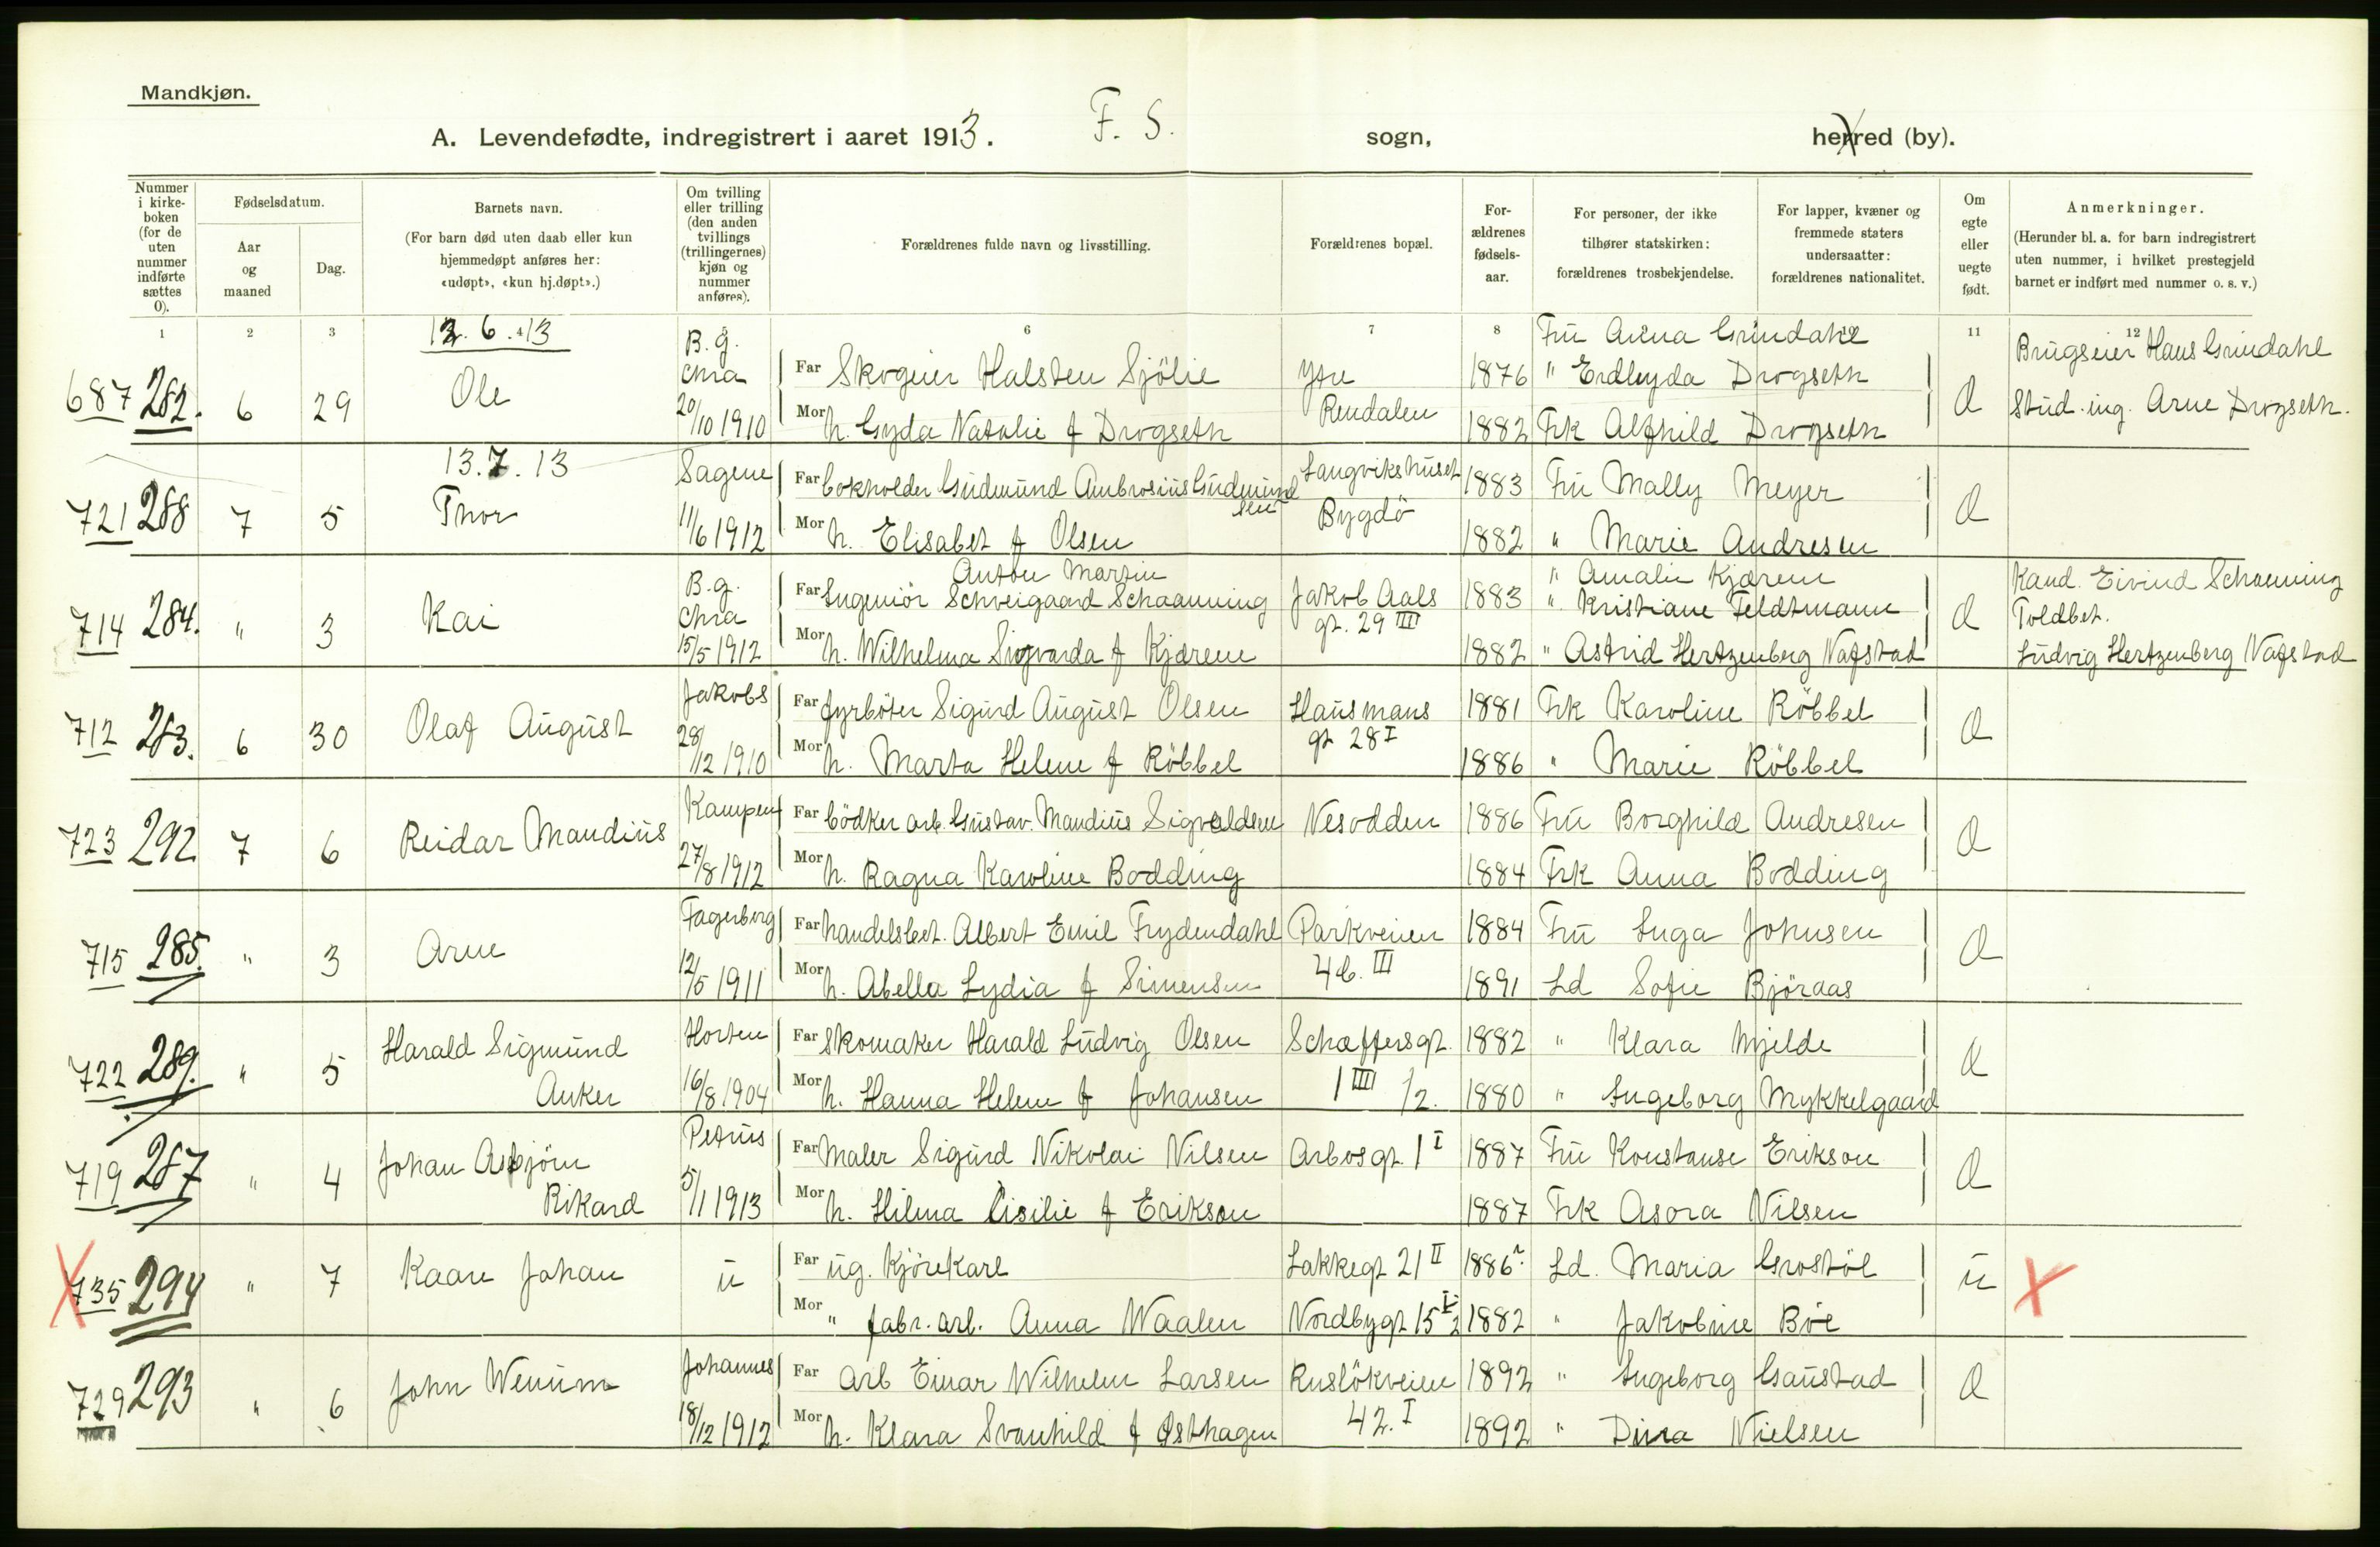 Mandkjøn.
A. Levendefødte, indregistrert i aaret 1913. F. S. sogn, herred (by).
Nummer i kirke-boken (for de uten nummer indførte sættes 0).
Fødselsdatum.
Aar og maaned
Dag.
Barnets navn.
(For barn død uten daab eller kun hjemmedøpt anføres her: «udøpt», «kun hj.døpt».)
Om tvilling eller trilling (den anden tvillings (trillingernes) kjøn og nummer anføres).
Forældrenes fulde navn og livsstilling.
Forældrenes bopæl.
For-ældrenes fødsels-aar.
For personer, der ikke tilhører statskirken: forældrenes trosbekjendelse.
For lapper, kvæner og fremmede staters undersaatter: forældrenes nationalitet.
Om egte eller uegte født.
Anmerkninger.
(Herunder bl. a. for barn indregistrert uten nummer, i hvilket prestegjeld barnet er indført med nummer o. s. v.)
1 2 3 4 6 7 8 11 12
6. 13
Fru Anna Grindahl
Brugseier Hans Grindahl
687 282. 6 29 Ole B.g. Chra 20/10 1910
Far Skogeier Halsten Sjölie Ytre Rendalen 1876 " Erdleyda Drogseth
Mor h. Gyda Natalie f Drogseth 1882 Frk Alfhild Drogseth
Stud. ing. Arne Drogseth.
13.7.13
721 288 7 5 Thor Sagene 11/6 1912
Far bokholder Gudmund Ambrosius Gudmundsen Langvikshuset Bygdö 1883 Fru Mally Meyer
Mor h. Elisabet f Olsen 1882 " Marie Andresen
714 284. " 3 Kai B.g. Chra 15/5 1912
Anton Martin
Far Ingeniör Schveigaard Schaanning Jakob Aals gt. 29 III 1883
" Amalie Kjærem
" Kristiane Feldtmann
Mor h. Wilhelma Sigvarda f Kjærem 1882 " Astrid Hertzenberg Nafstad
Kand. Eivind Schaanning
Toldbet.
Ludvig Hertzenberg Nafstad
712 283. 6 30 Olaf August Jakobs 28/12 1910
Far fyrböter Sigurd August Olsen Hausmans gt 28 I 1881 Frk Karoline Röbbel
Mor h. Marta Helene f Röbbel 1886 " Marie Röbbel
723 292 7 6 Reidar Mandius Kampen 27/8 1912
Far bödker arb. Gustav Mandius Sigvaldsen Nesodden 1886 Fru Borghild Andresen
Mor h. Ragna Karoline Bodding 1884 Frk Anna Bodding
715 285. " 3 Arne Fagerborg 12/5 1911
Far handelsbet. Albert Emil Frydendahl Parkveien 4b. III 1884 Fru Inga Johnsen
Mor h. Abella Lydia f Simensen 1891 Ld Sofie Björaas
722 289. " 5 Harald Sigmund Anker Horten 16/8 1904
Far Skomaker Harald Ludvig Olsen Schæffersgt. 1 III /2. 1882 " Klara Mjelde
Mor h. Hanna Helene f Johansen 1880 " Ingeborg Mykkelgaard
719 287 " 4 Johan Asbjörn Rikard Petrus 5/1 1913
Far Maler Sigurd Nikolai Nilsen Arbosgt. 1 I 1887 Fru Konstanse Erikson
Mor h. Hilma Cisilie f Erikson 1887 Frk Asora Nilsen
735 294 " 7 Kaare Johan u
Far ug. Kjörekarl Lakkegt 21 II 1886 Ld. Maria Grostöl u
Mor " fabr. arb. Anna Waalen Nordbygt 15 I 2 1882 " Jakobine Böe
729 293 " 6 John Wenum Johannes 18/12 1912
Far Arb Einar Wilhelm Larsen Ruslökveien 42. I 1892 " Ingeborg Gaustad
Mor h. Klara Svanhild f Østhagen 1892 " Dina Nielsen